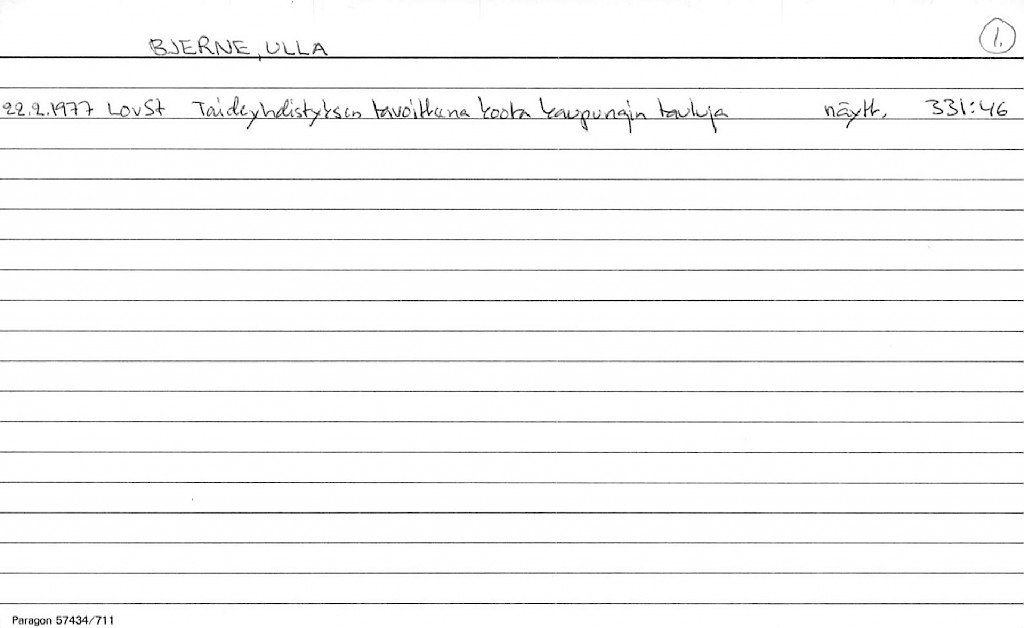 BJERNE, ULLA
1.
22.2.1977 LovSt Taideyhdistyksen tavoitteena koota kaupungin tauluja näytt. 331:46
Paragon 57434/711